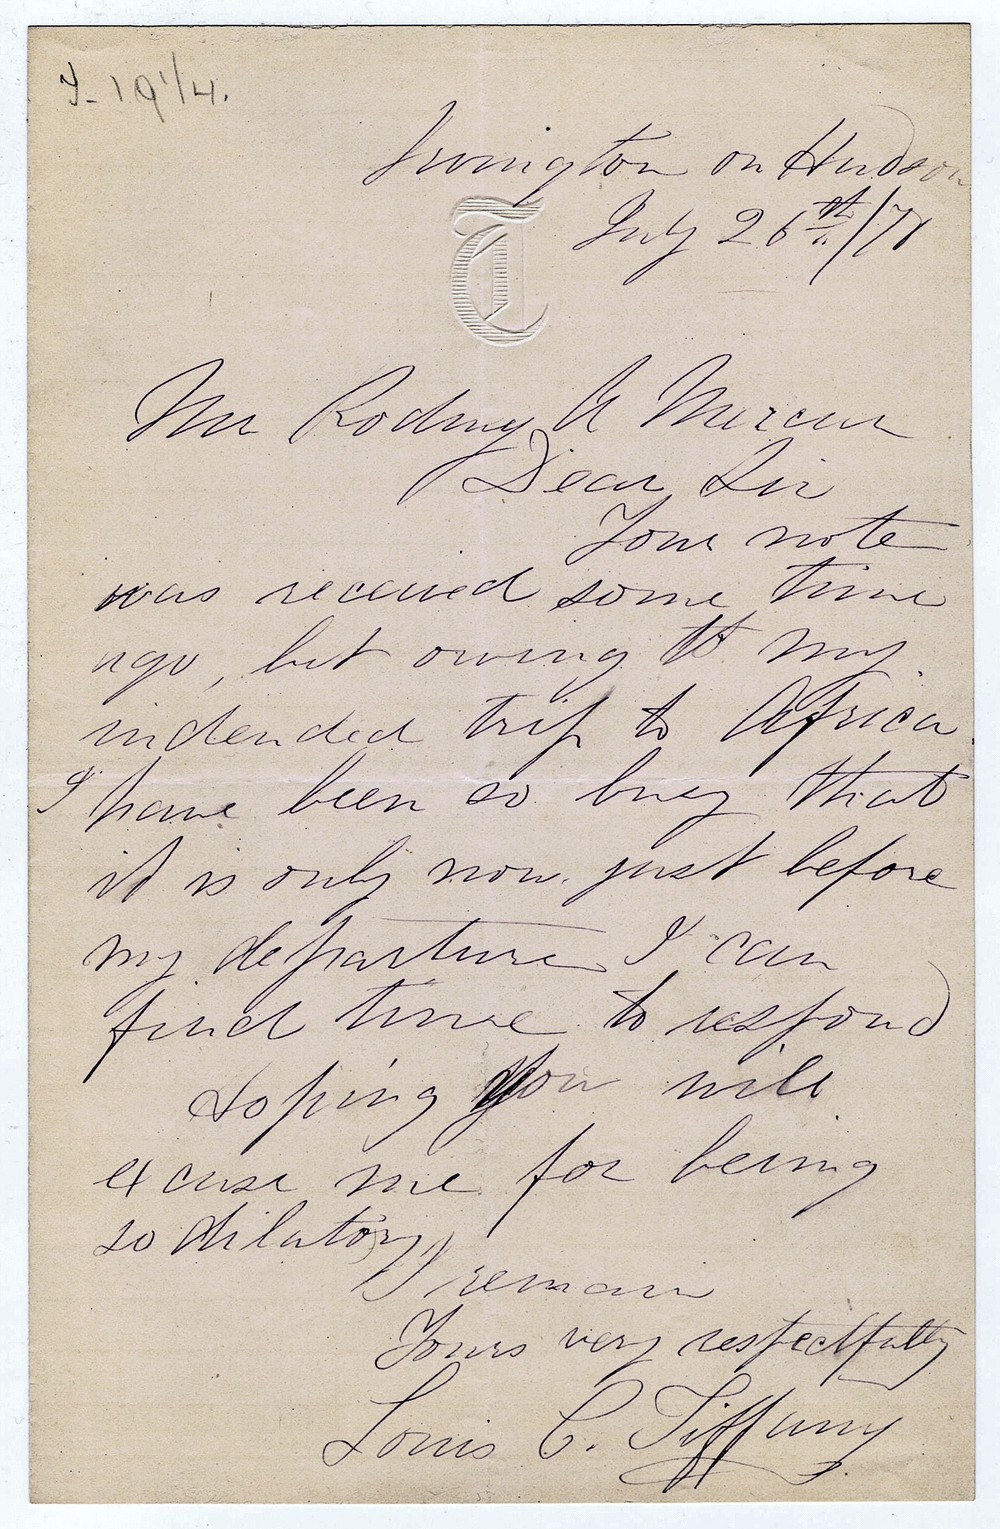 Irvington on Hudson
July 26th/71
T
Mr Rodney A Mercur
Dear Sir
Your note
was received some time
ago, but owing to my
indended trip to Africa
I have been so busy that
it is only now just before
my departure I can
find time to respond
Hoping you will
excuse me for being
so dilatory
I remain
Yours very respectfully
Louis C. Tiffany